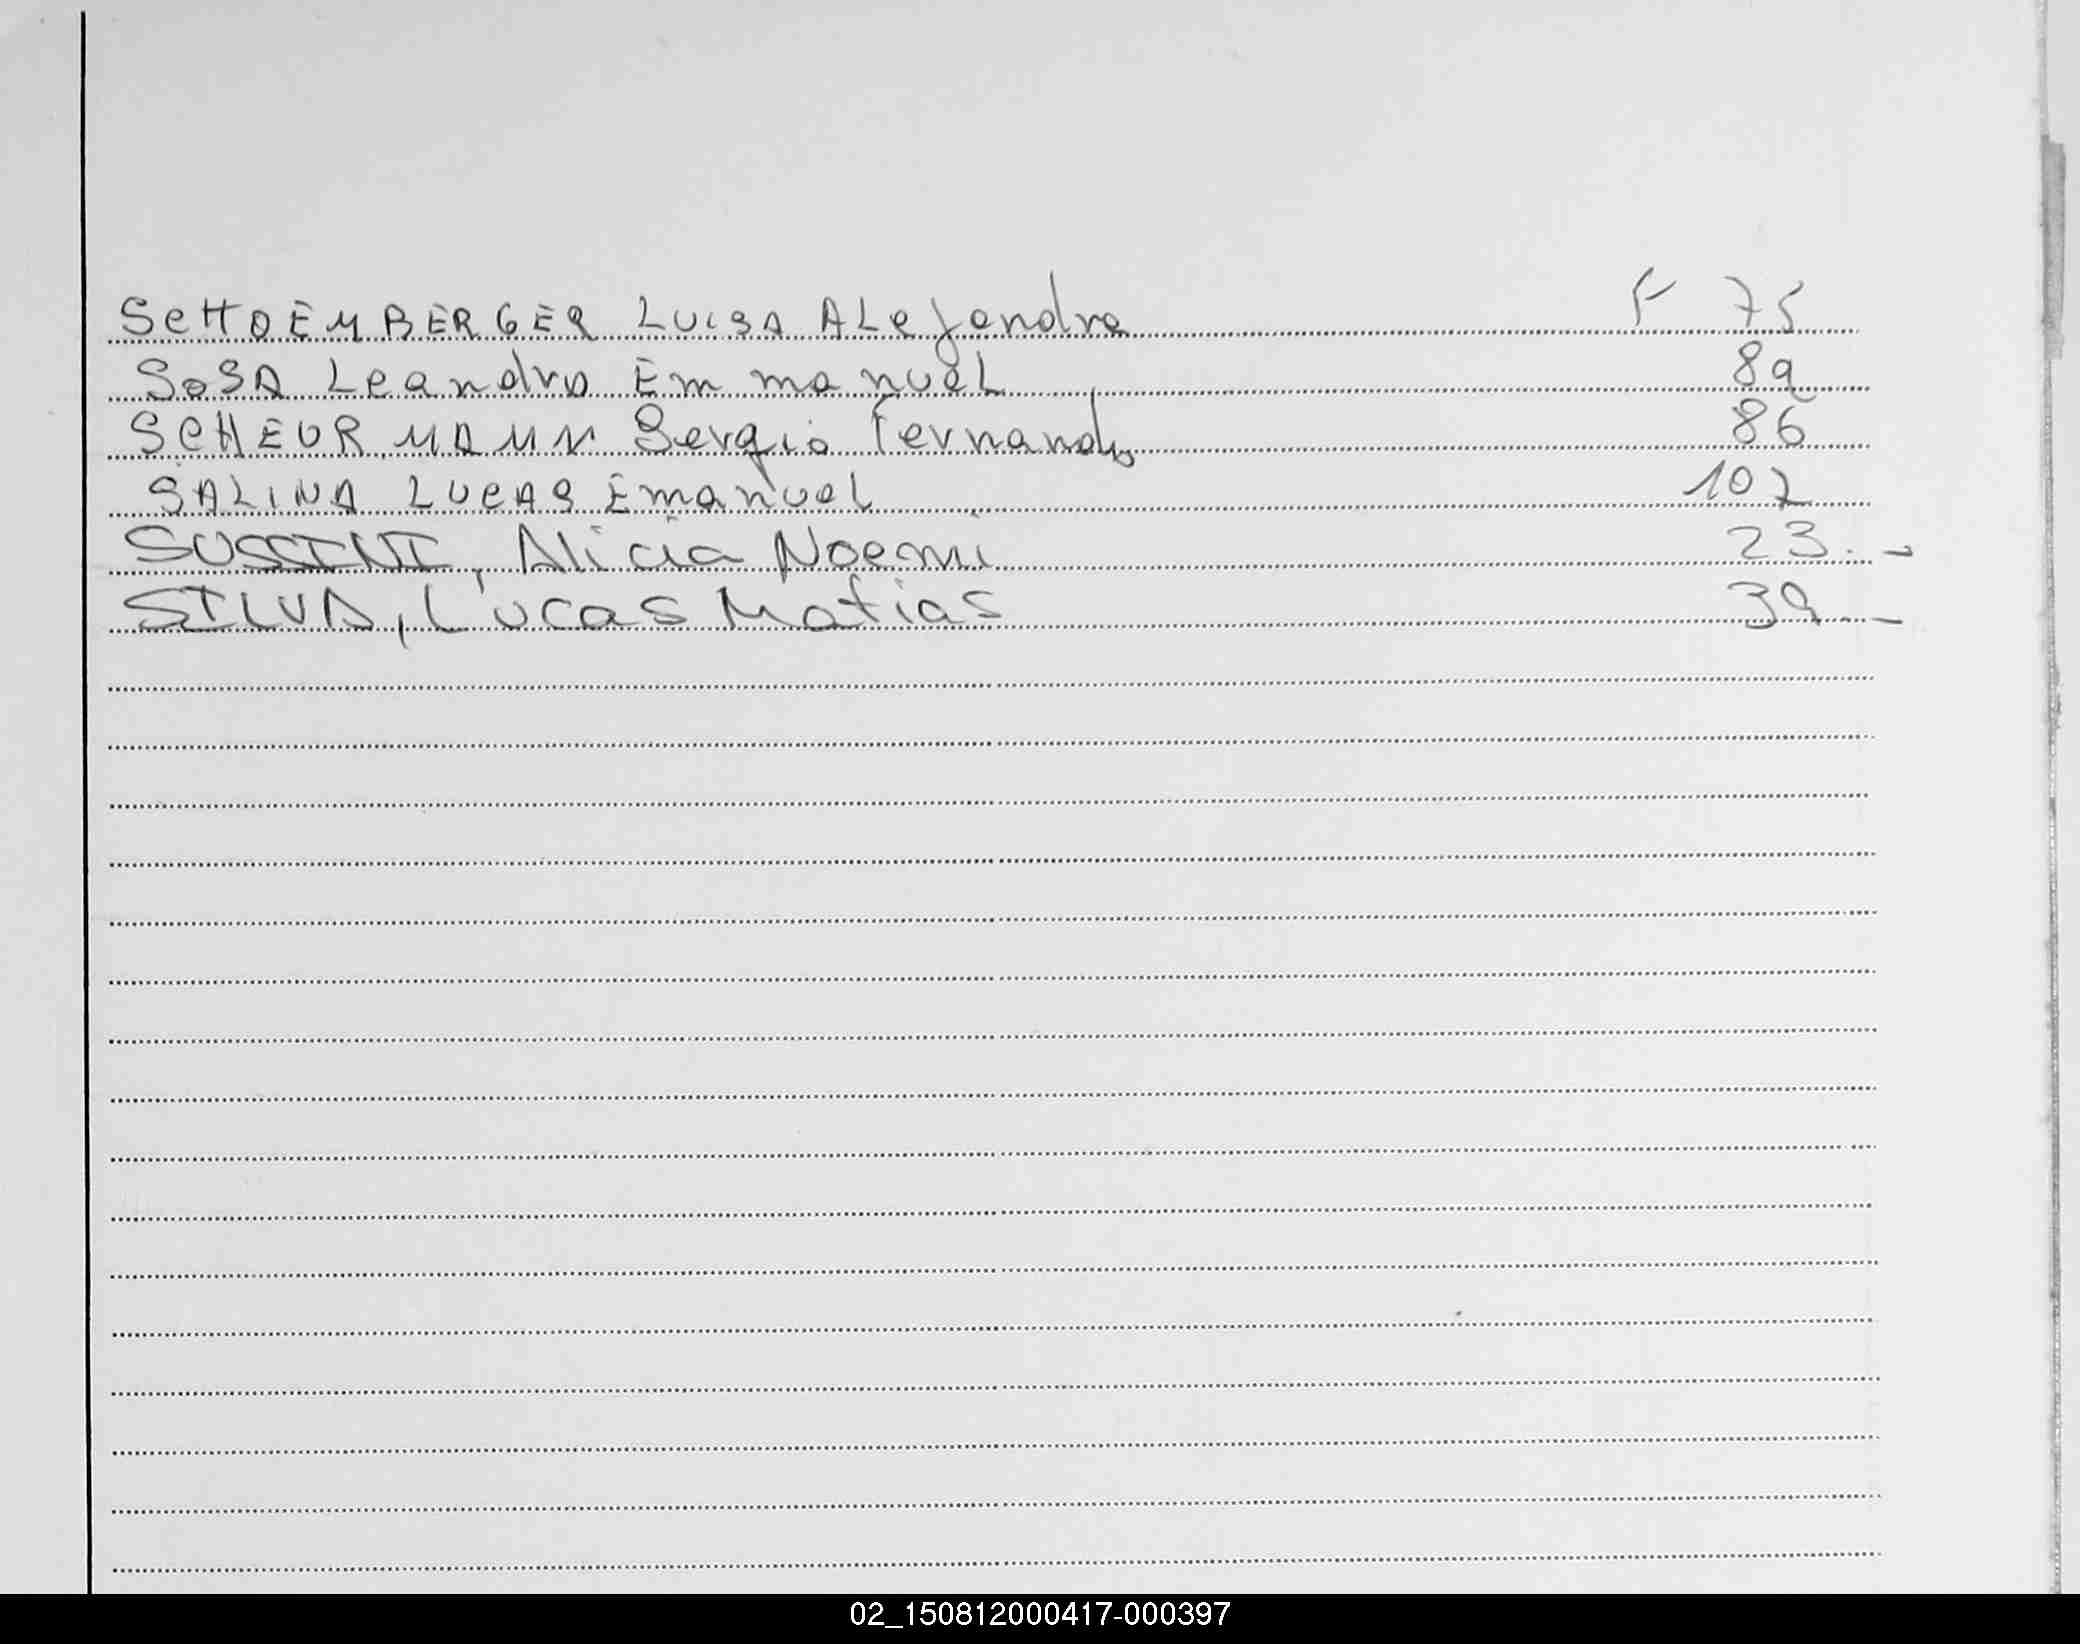 SCHOEMBERGER LUISA ALejandra F 75
SOSA Leandro Emmanuel 89
SCHEURMANN Sergio Fernando 86
SALINA LUCAS Emanuel 102
SUSSINI, Alicia Noemi 23.-
SILVA, Lucas Matias 39-
02_150812000417-000397